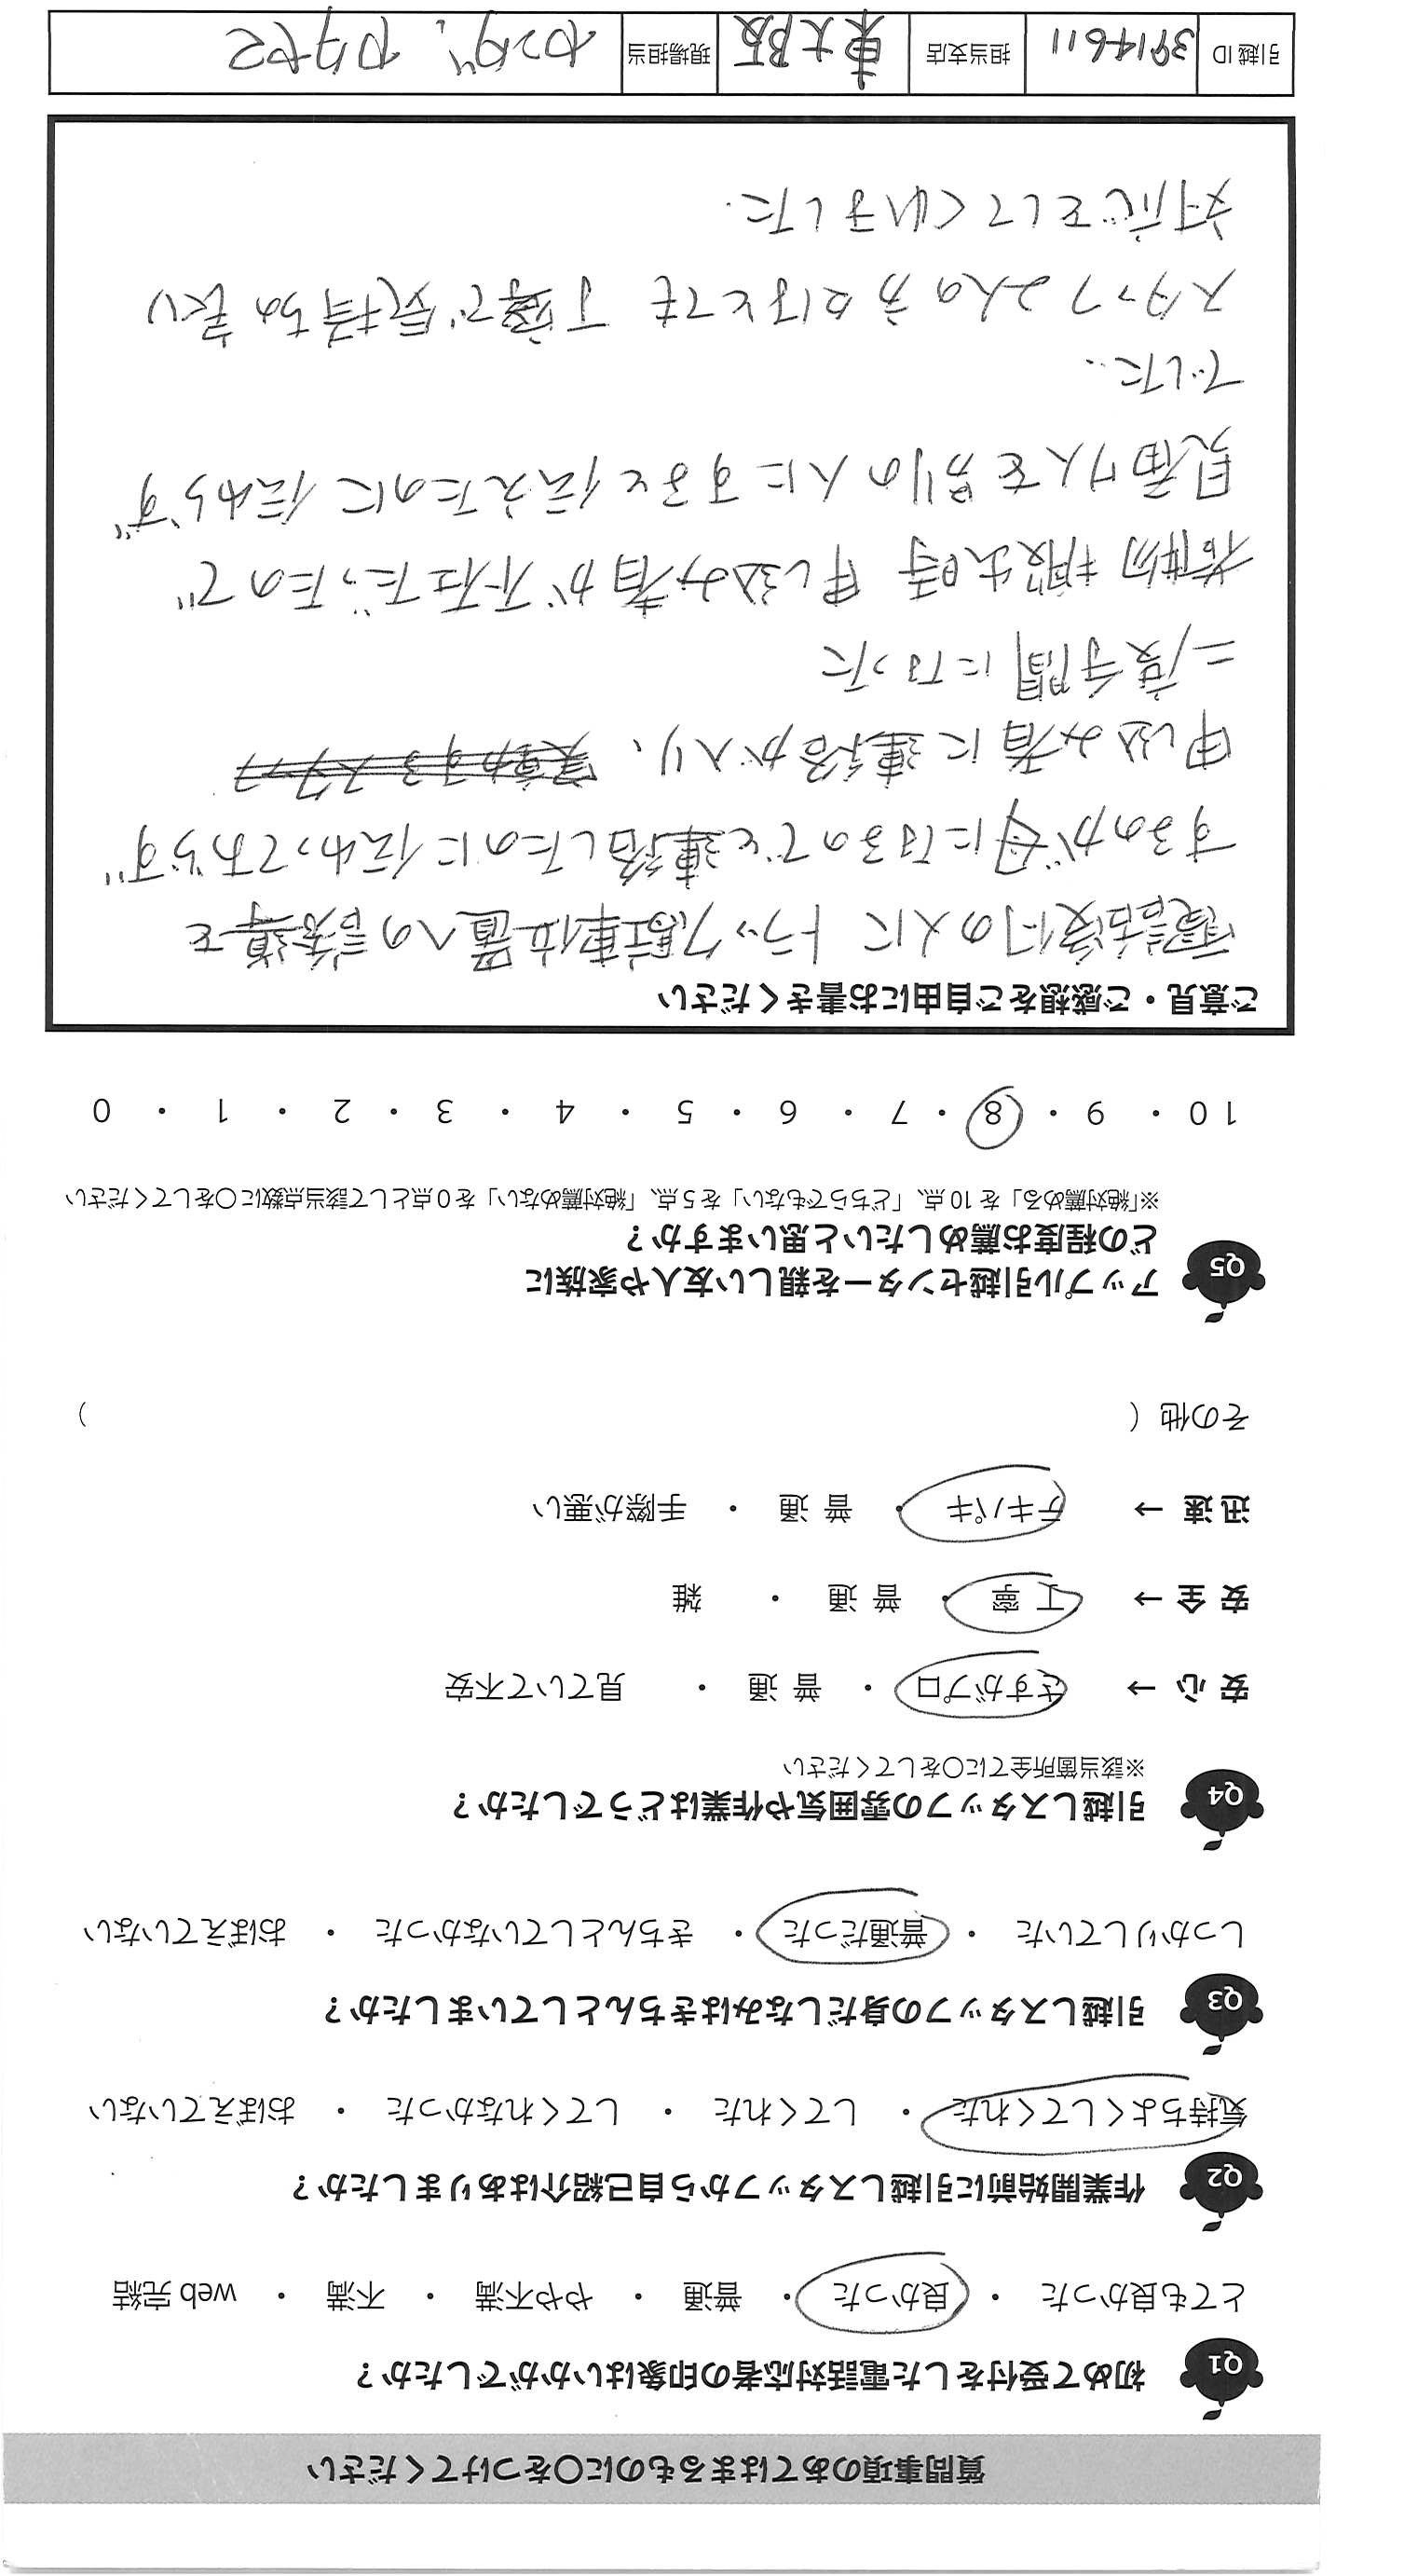 質問事項のあてはまるものに〇をつけてください
Q1 初めて受付をした電話対応者の印象はいかがでしたか？
とても良かった ・ 良かった ・ 普通 ・ やや不満 ・ 不満 ・ web 完結
Q2 作業開始前に引越しスタッフから自己紹介はありましたか？
気持ちよくしてくれた ・ してくれた ・ してくれなかった ・ おぼえていない
Q3 引越しスタッフの身だしなみはきちんとしていましたか？
しっかりしていた ・ 普通だった ・ きちんとしていなかった ・ おぼえていない
Q4 引越しスタッフの雰囲気や作業はどうでしたか？
※該当箇所全てに〇をしてください
安 心 → さすがプロ ・ 普 通 ・ 見ていて不安
安 全 → 丁 寧 ・ 普 通 ・ 雑
迅 速 → テキパキ ・ 普 通 ・ 手際が悪い
その他（ ）
Q5 アップル引越センターを親しい友人や家族に
どの程度お薦めしたいと思いますか？
※「絶対薦める」を 10 点、「どちらでもない」を 5 点、「絶対薦めない」を 0 点として該当点数に〇をしてください
10 ・ 9 ・ 8 ・ 7 ・ 6 ・ 5 ・ 4 ・ 3 ・ 2 ・ 1 ・ 0
ご意見・ご感想をご自由にお書きください
電話受付の人に トラック駐車位置への誘導を
するのが母になるのでと連絡したのに伝わっておらず
申し込み者に連絡が入り、実動するスタッフ
二度手間になった
荷物搬出時 申し込み者が不在だったので
見届け人を別の人にすると伝えたのに伝わらず
でした..
スタッフ2人の方々はとても 丁寧で気持ちの良い
対応をしてくれました.
引越 ID 3914611 担当支店 東大阪 現場担当